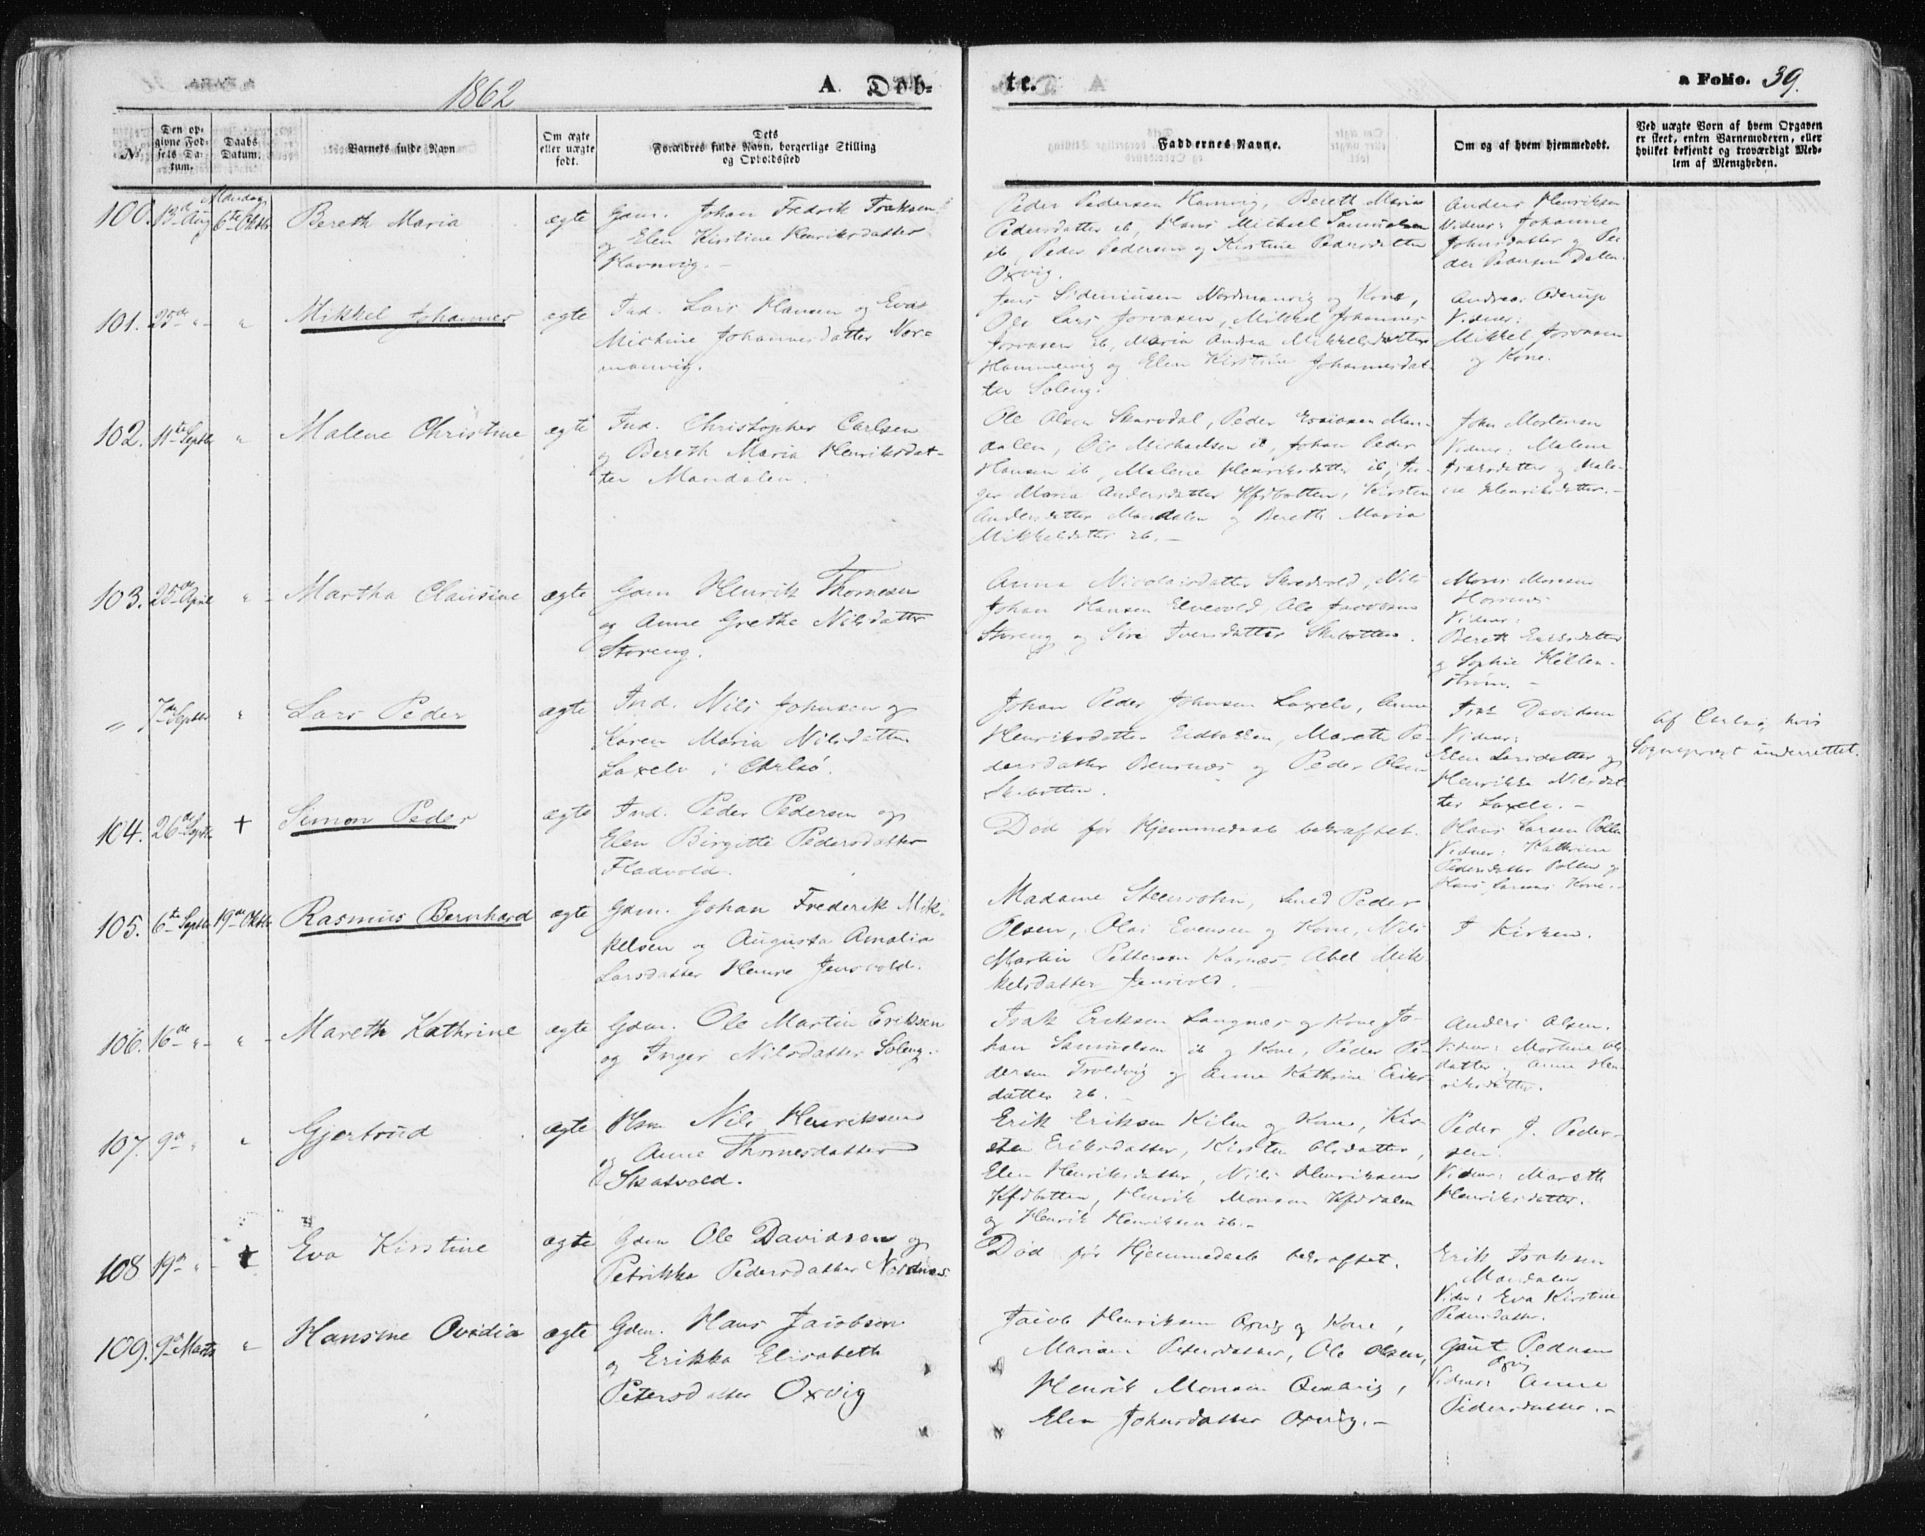 1862
A. Døb-
te.
a Folio. 39.
No.
Den op-
givne Fød-
sels Da-
tum.
Daabs
Datum.
Barnets fulde Navn
Om ægte
eller uægte
født.
Dets
Forældres fulde Navn, borgerlige Stilling
og Opholdssted
Faddernes Navne.
Om og af hvem hjemmedøbt.
Ved uægte Børn af hvem Opgaven
er skeet, enten Barnemoderen, eller
hvilket bekjendt og troværdigt Med-
lem af Menigheden.
100. 13de Aug Mandag 6te Oktbr Bereth Maria ægte
Gdm. Johan Fredrik Isaksen
og Elen Kirstine Henriksdatter
Havnvig.
Peder Pedersen Havnvig, Bereth Maria
Pedersdatter ib, Hans Michael Samuelsen
ib, Peder Pedersen og Kirstine Pedersdatter
Oxvig.
Anders Henriksen
Vidner: Johanne
Johnsdatter og Pe-
der Pedersen Dalen.
101. 25de " " Mikkel Johannes ægte
Ind. Lars Hansen og Eva
Michine Johannesdatter Nor-
manvig.
Jens Sideniusen Nordmanvig og Kone,
Ole Lars , Mikkel Johannes
ib, Maria Andrea Mikkelsdatter
Hammervig og Elen Kirstine Johannesdat-
ter Soleng.
Andreas
Vidner:
Mikkel
og Kone.
102. 11te Septbr " Malene Christine ægte
Ind. Christopher Carlsen
og Bereth Maria Henriksdat-
ter Mandalen.
Ole Olsen Skarsdal, Peder Man-
dalen, Ole Michaelsen ib, Johan Peder
Hansen ib, Malene Henriksdatter ib, In-
ger Maria Andersdatter Kfdbotten, Kirsten
Andersdatter Mandalen og Bereth Maria
Mikkelsdatter ib.
John Mortensen
Vidner: Malene
Isaksdatter og Male-
ne Henriksdatter.
103. 25de April " Martha Clausine ægte
Gdm Henrik Thomesen
og Anne Grethe Nilsdatter
Storeng.
Anna Nicolaisdatter , Nils
Johan Hansen Elvevold, Ole
Storeng og Siri Iversdatter Skibotten.
Mons Monsen
Horsnes
Vidner:
Bereth
og Sophie Hellen-
strøm.
" 7de Septbr " Lars Peder ægte
Ind. Nils Johnsen og
Karen Maria Nilsdatter
Laxelv i Carlsø.
Johan Peder Johnsen Laxelv, Anne
Henriksdatter , Mareth Pe-
dersdatter og Peder Olsen
Skibotten.
Isak Davidsen
Vidner:
Elen Larsdatter og
Henrikka Nilsdat-
ter Laxelv.
Af Carlsø, hvis
Sognepræst underrettet.
104. 26de Septb + Simon Peder ægte
Ind. Peder Pedersen og
Elen Birgitte Pedersdatter
Fladvold.
Død før Hjemmedaab bekræftet.
Hans Larsen Pollen
Vidner: Kathrine
Pedersdatter Pollen og
Hans Larsens Kone.
105. 6te Septbr 19de Oktbr Rasmus Bernhard ægte
Gdm. Johan Frederik Mik-
kelsen og Augusta Amalia
Larsdatter Jensvold.
Madame Steensohn, Peder
Olsen, Olai Evensen og Kone, Nils
Martin Pettersen Karnæs, Abel Mik-
kelsdatter Jensvold.
I Kirken.
106. 16de " " Mareth Kathrine ægte
Gdm. Ole Martin Eriksen
og Inger Nilsdatter Soleng.
Isak Eriksen Langnæs og Kone Jo-
han Samuelsen ib og Kone, Peder Pe-
dersen Troldvig og Anne Kathrine Eriks-
datter ib.
Anders Olsen.
Vidner: Martine Ols-
datter, Anne Hen-
riksdatter.
107. 9de " " Gjertrud ægte
Hsm Nils Henriksen
og Anne Thomesdatter
Skatvold.
Erik Eriksen Kilen og Kone, Kir-
sten Eriksdatter, Kirsten Olsdatter,
Elen Henriksdatter, Nils Henriksen
Kfdbotten, Henrik Monsen Kfddalen
og Henrik Henriksen ib.
Peder J. Peder-
sen.
Vidner: Mareth
Henriksdatter.
108 19de " + Eva Kirstine ægte
Gdm Ole Davidsen og
Petrikka Pedersdatter Nordnæs
Død før Hjemmedaab bekræftet.
Erik Isaksen
Mandalen
Vidner: Eva Kirstine
Pedersdatter.
109. 9de Marts " Hansine Ovidia ægte
Gdm. Hans Jacobsen
og Erikka Elisabeth
Petersdatter Oxvig
Jacob Henriksen Oxvig og Kone,
Marian Petersdatter, Ole Olsen,
Henrik Monsen ,
Elen Johnsdatter Oxvig.
Gaut Pedersen
Oxvig
Vidner: Anne
Pedersdatter.